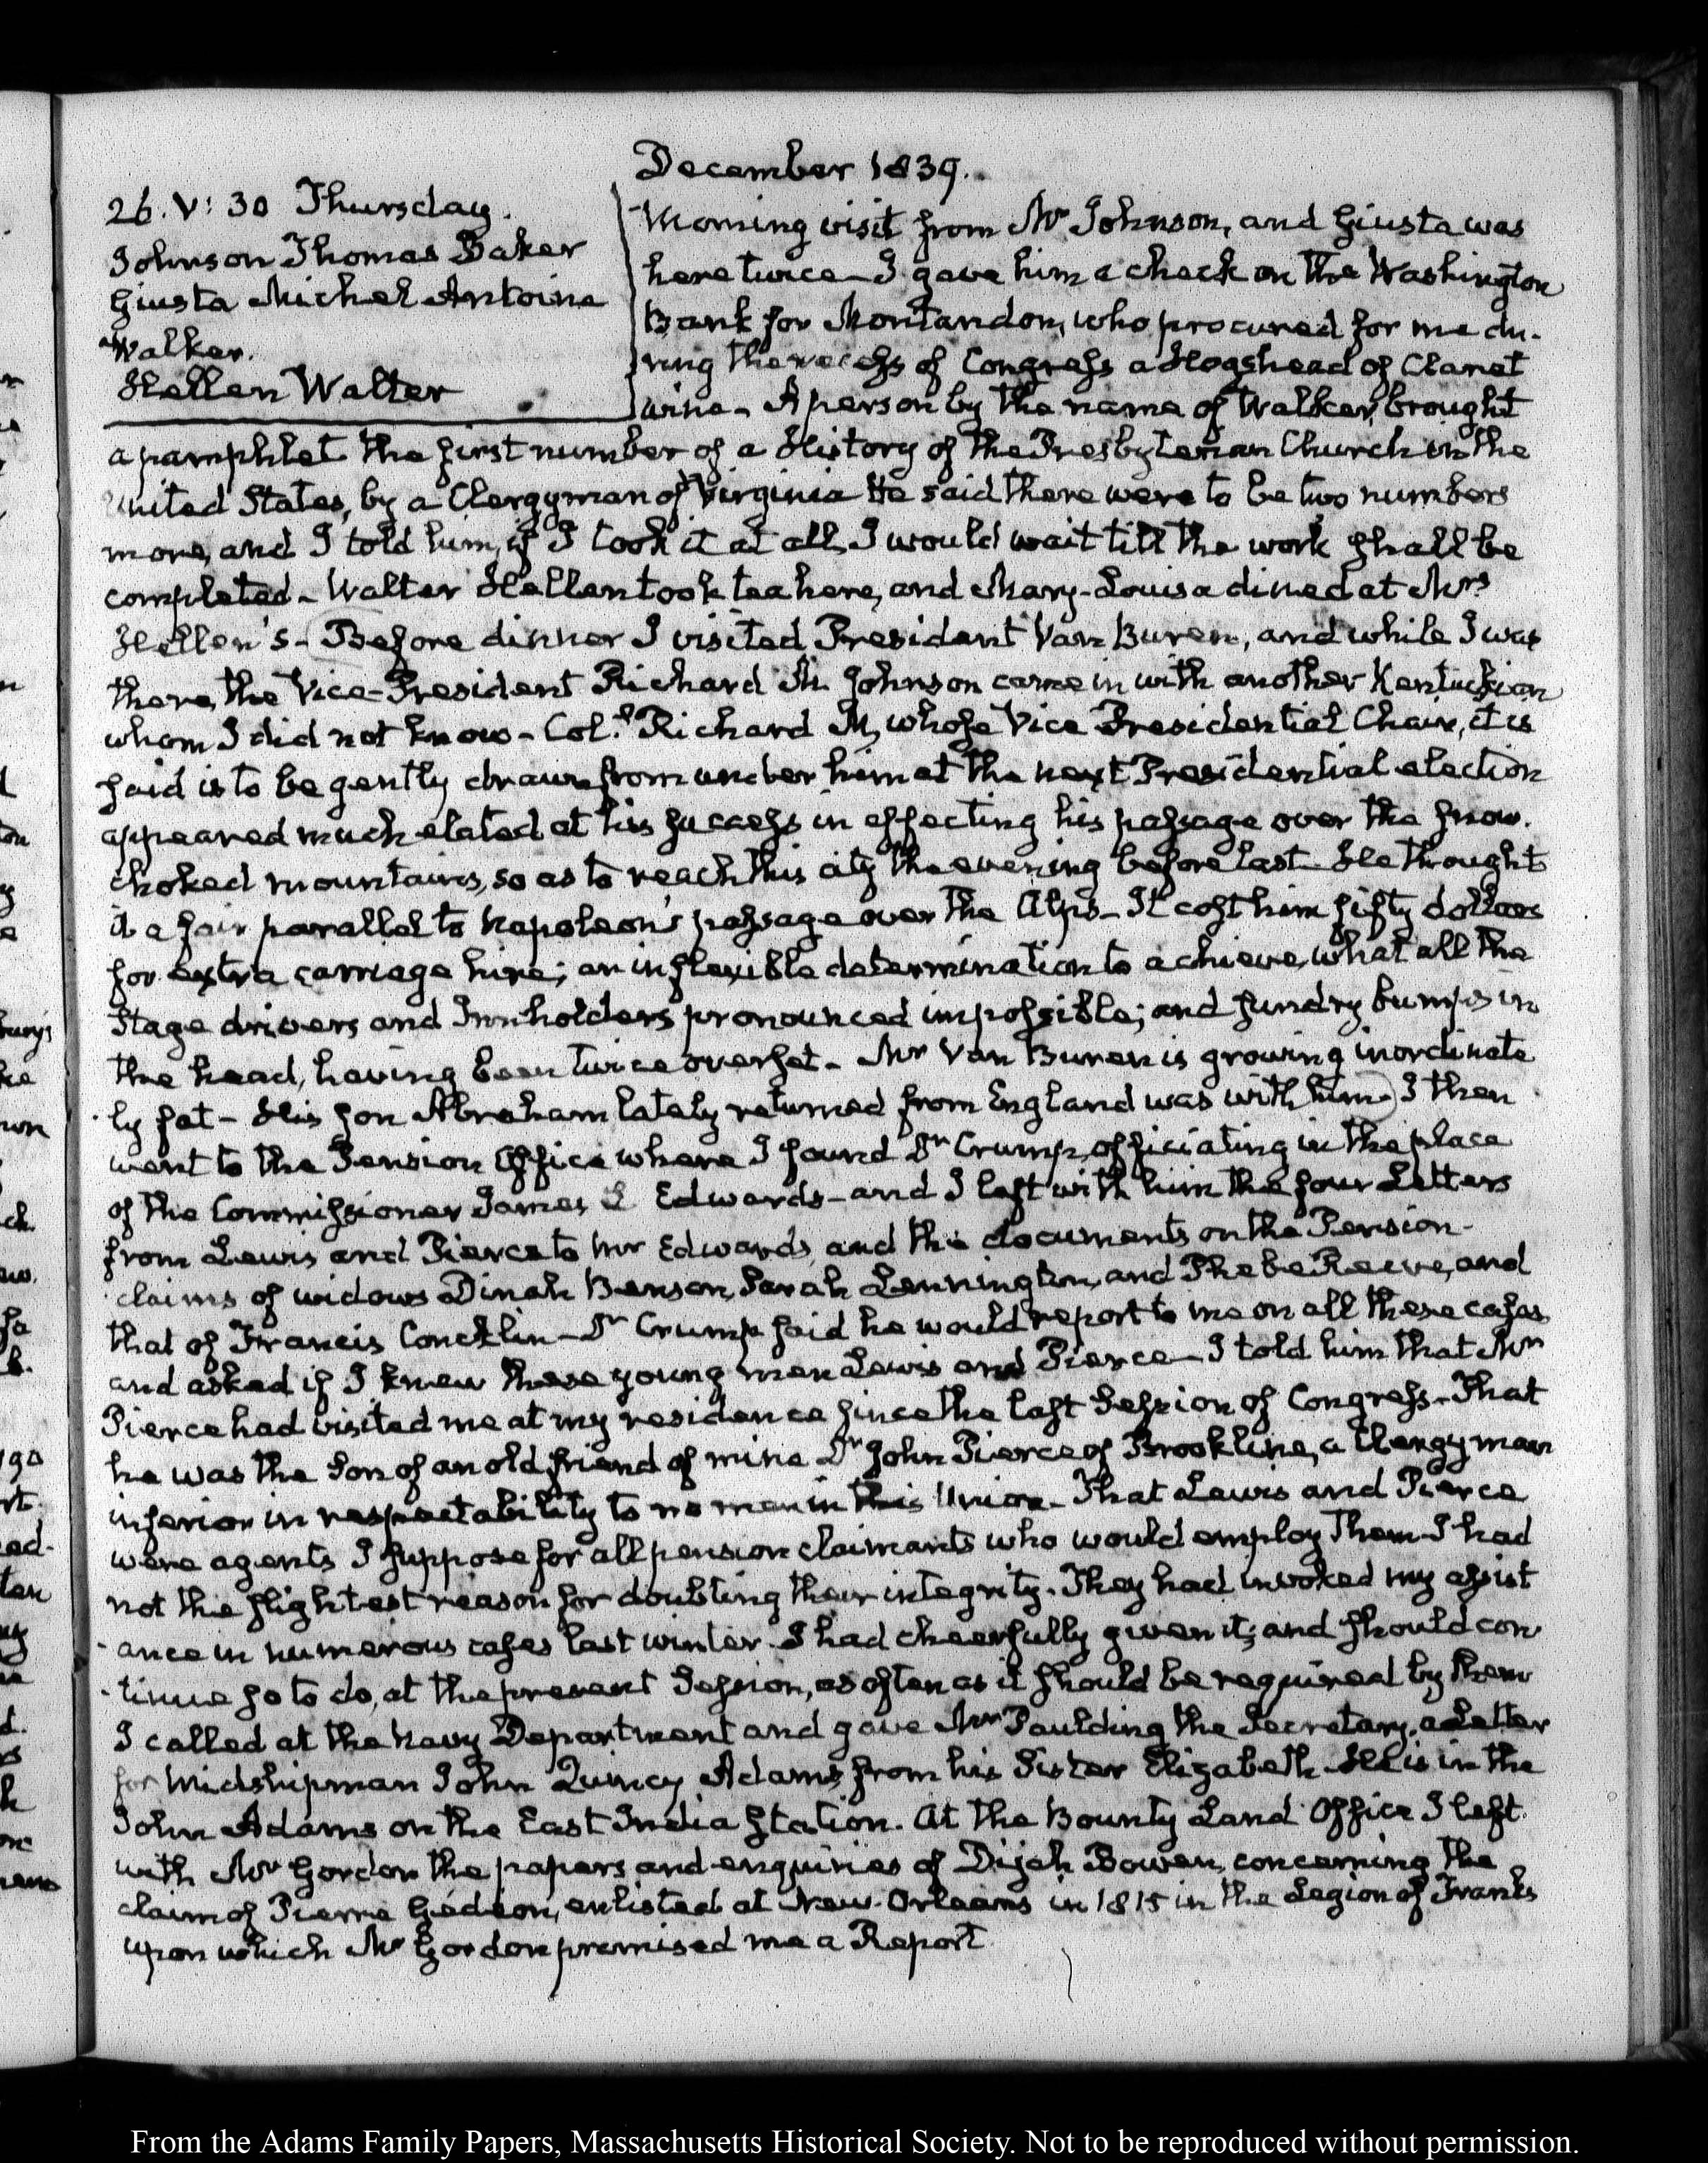 December 1839.
26. V: 30 Thursday.
Johnson Thomas Baker
Giusta Michel Antoine
Walker.
Hellen Walter
Morning visit from Mr Johnson, and Giusta was
here twice — I gave him a check on the Washington
Bank for Montandon, who procured for me du-
ring the recess of Congress a Hogshead of Claret
wine — A person by the name of Walker, brought
a pamphlet the first number of a History of the Presbyterian Church in the
United States, by a Clergyman of Virginia He said there were to be two numbers
more, and I told him, if I took it at all, I would wait till the work shall be
completed — Walter Hellen took tea here, and Mary-Louisa dined at Mrs
Hellen's — Before dinner I visited President Van Buren, and while I was
there, the Vice-President Richard M. Johnson came in with another Kentuckian
whom I did not know — Col.l Richard M, whose Vice Presidential Chair, it is
said is to be gently drawn from under him at the next Presidential election
appeared much elated at his success in effecting his passage over the snow-
choked mountains, so as to reach this city the evening before last — He thought
it a fair parallel to Napoleon's passage over the Alps — It cost him fifty dollars
for extra carriage hire; an inflexible determination to achieve, what all the
Stage drivers and Innholders pronounced impossible; and sundry bumps in
the head, having been twice overset — Mr Van Buren is growing inordinate
ly fat — His son Abraham lately returned from England was with him — I then
went to the Pension Office where I found Dr Crump, officiating in the place
of the Commissioner James L Edwards — and I left with him the four Letters
from Lewis and Pierce to Mr Edwards, and the documents on the Pension-
claims of widows Dinah Benson, Sarah Lennington, and Phebe Reeve, and
that of Francis Concklin — Dr Crump said he would report to me on all these cases
and asked if I knew these young men Lewis and Pierce — I told him that Mr
Pierce had visited me at my residence since the last Session of Congress — That
he was the Son of an old friend of mine Dr John Pierce of Brookline, a Clergyman
inferior in respectability to no man in this Union — That Lewis and Pierce
were agents I suppose for all pension claimants who would employ them — I had
not the slightest reason for doubting their integrity. They had invoked my assist
ance in numerous cases last winter. I had cheerfully given it; and should con
tinue so to do, at the present Session, as often as it should be required by them
I called at the Navy Department and gave Mr Paulding the Secretary, a Letter
for Midshipman John Quincy Adams from his Sister Elizabeth — He is in the
John Adams on the East India Station. At the Bounty Land Office I left
with Mr Gordon the papers and enquiries of Dijah Bowen, concerning the
claim of Pierre Gédéon, enlisted at New-Orleans in 1815 in the Legion of Franks
upon which Mr Gordon promised me a Report
From the Adams Family Papers, Massachusetts Historical Society. Not to be reproduced without permission.